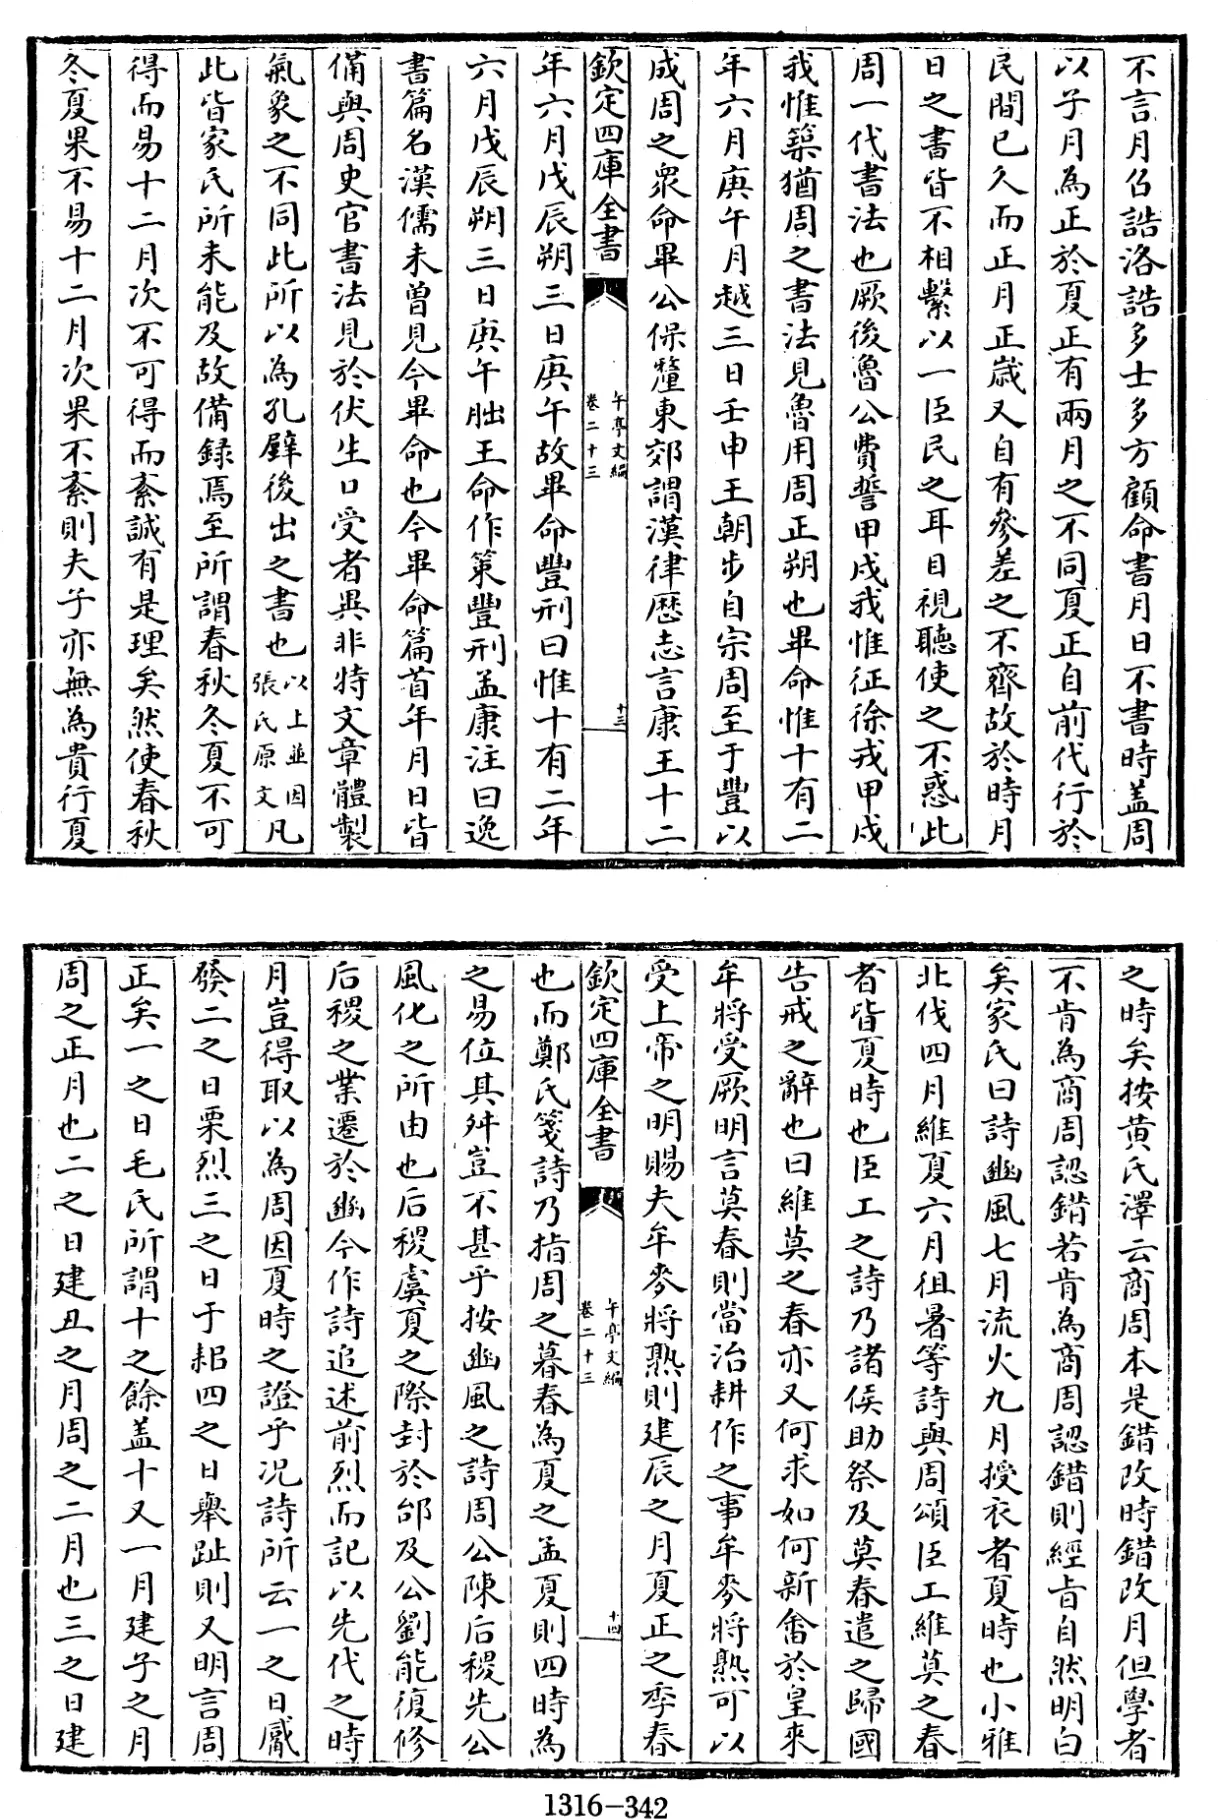 不言月召誥洛誥多士多方顧命書月日不書時盖周
以子月為正於夏正有兩月之不同夏正自前代行於
民間已久而正月正歲又自有參差之不齊故於時月
日之書皆不相繫以一臣民之耳目視聽使之不惑此
周一代書法也厥後魯公費誓甲戌我惟征徐戎甲戌
我惟築猶周之書法見魯用周正朔也畢命惟十有二
年六月庚午月越三日壬申王朝步自宗周至于豐以
成周之衆命畢公保釐東郊謂漢律厯志言康王十二
欽定四庫全書
午亭文編
卷二十三
十三
年六月戊辰朔三日庚午故畢命豐刑曰惟十有二年
六月戊辰朔三日庚午朏王命作策豐刑孟康注曰逸
書篇名漢儒未曾見今畢命也今畢命篇首年月日皆
備與周史官書法見於伏生口受者異非特文章體製
氣象之不同此所以為孔壁後出之書也以上並因張氏原文凡
此皆家氏所未能及故備録焉至所謂春秋冬夏不可
得而易十二月次不可得而紊誠有是理矣然使春秋
冬夏果不易十二月次果不紊則夫子亦無為貴行夏
之時矣按黄氏澤云商周本是錯改時錯改月但學者
不肯為商周認錯若肯為商周認錯則經旨自然明白
矣家氏曰詩豳風七月流火九月授衣者夏時也小雅
北伐四月維夏六月徂暑等詩與周頌臣工維莫之春
者皆夏時也臣工之詩乃諸侯助祭及莫春遣之歸國
告戒之辭也曰維莫之春亦又何求如何新畬於皇來
牟將受厥明言莫春則當治耕作之事牟麥將熟可以
受上帝之明賜夫牟麥將熟則建辰之月夏正之季春
欽定四庫全書
午亭文編
卷二十三
十四
也而鄭氏箋詩乃指周之暮春為夏之孟夏則四時為
之易位其舛豈不甚乎按豳風之詩周公陳后稷先公
風化之所由也后稷虞夏之際封於邰及公劉能復修
后稷之業遷於豳今作詩追述前烈而記以先代之時
月豈得取以為周因夏時之證乎况詩所云一之日觱
發二之日栗烈三之日于耜四之日舉趾則又明言周
正矣一之日毛氏所謂十之餘盖十又一月建子之月
周之正月也二之日建丑之月周之二月也三之日建
1316-342